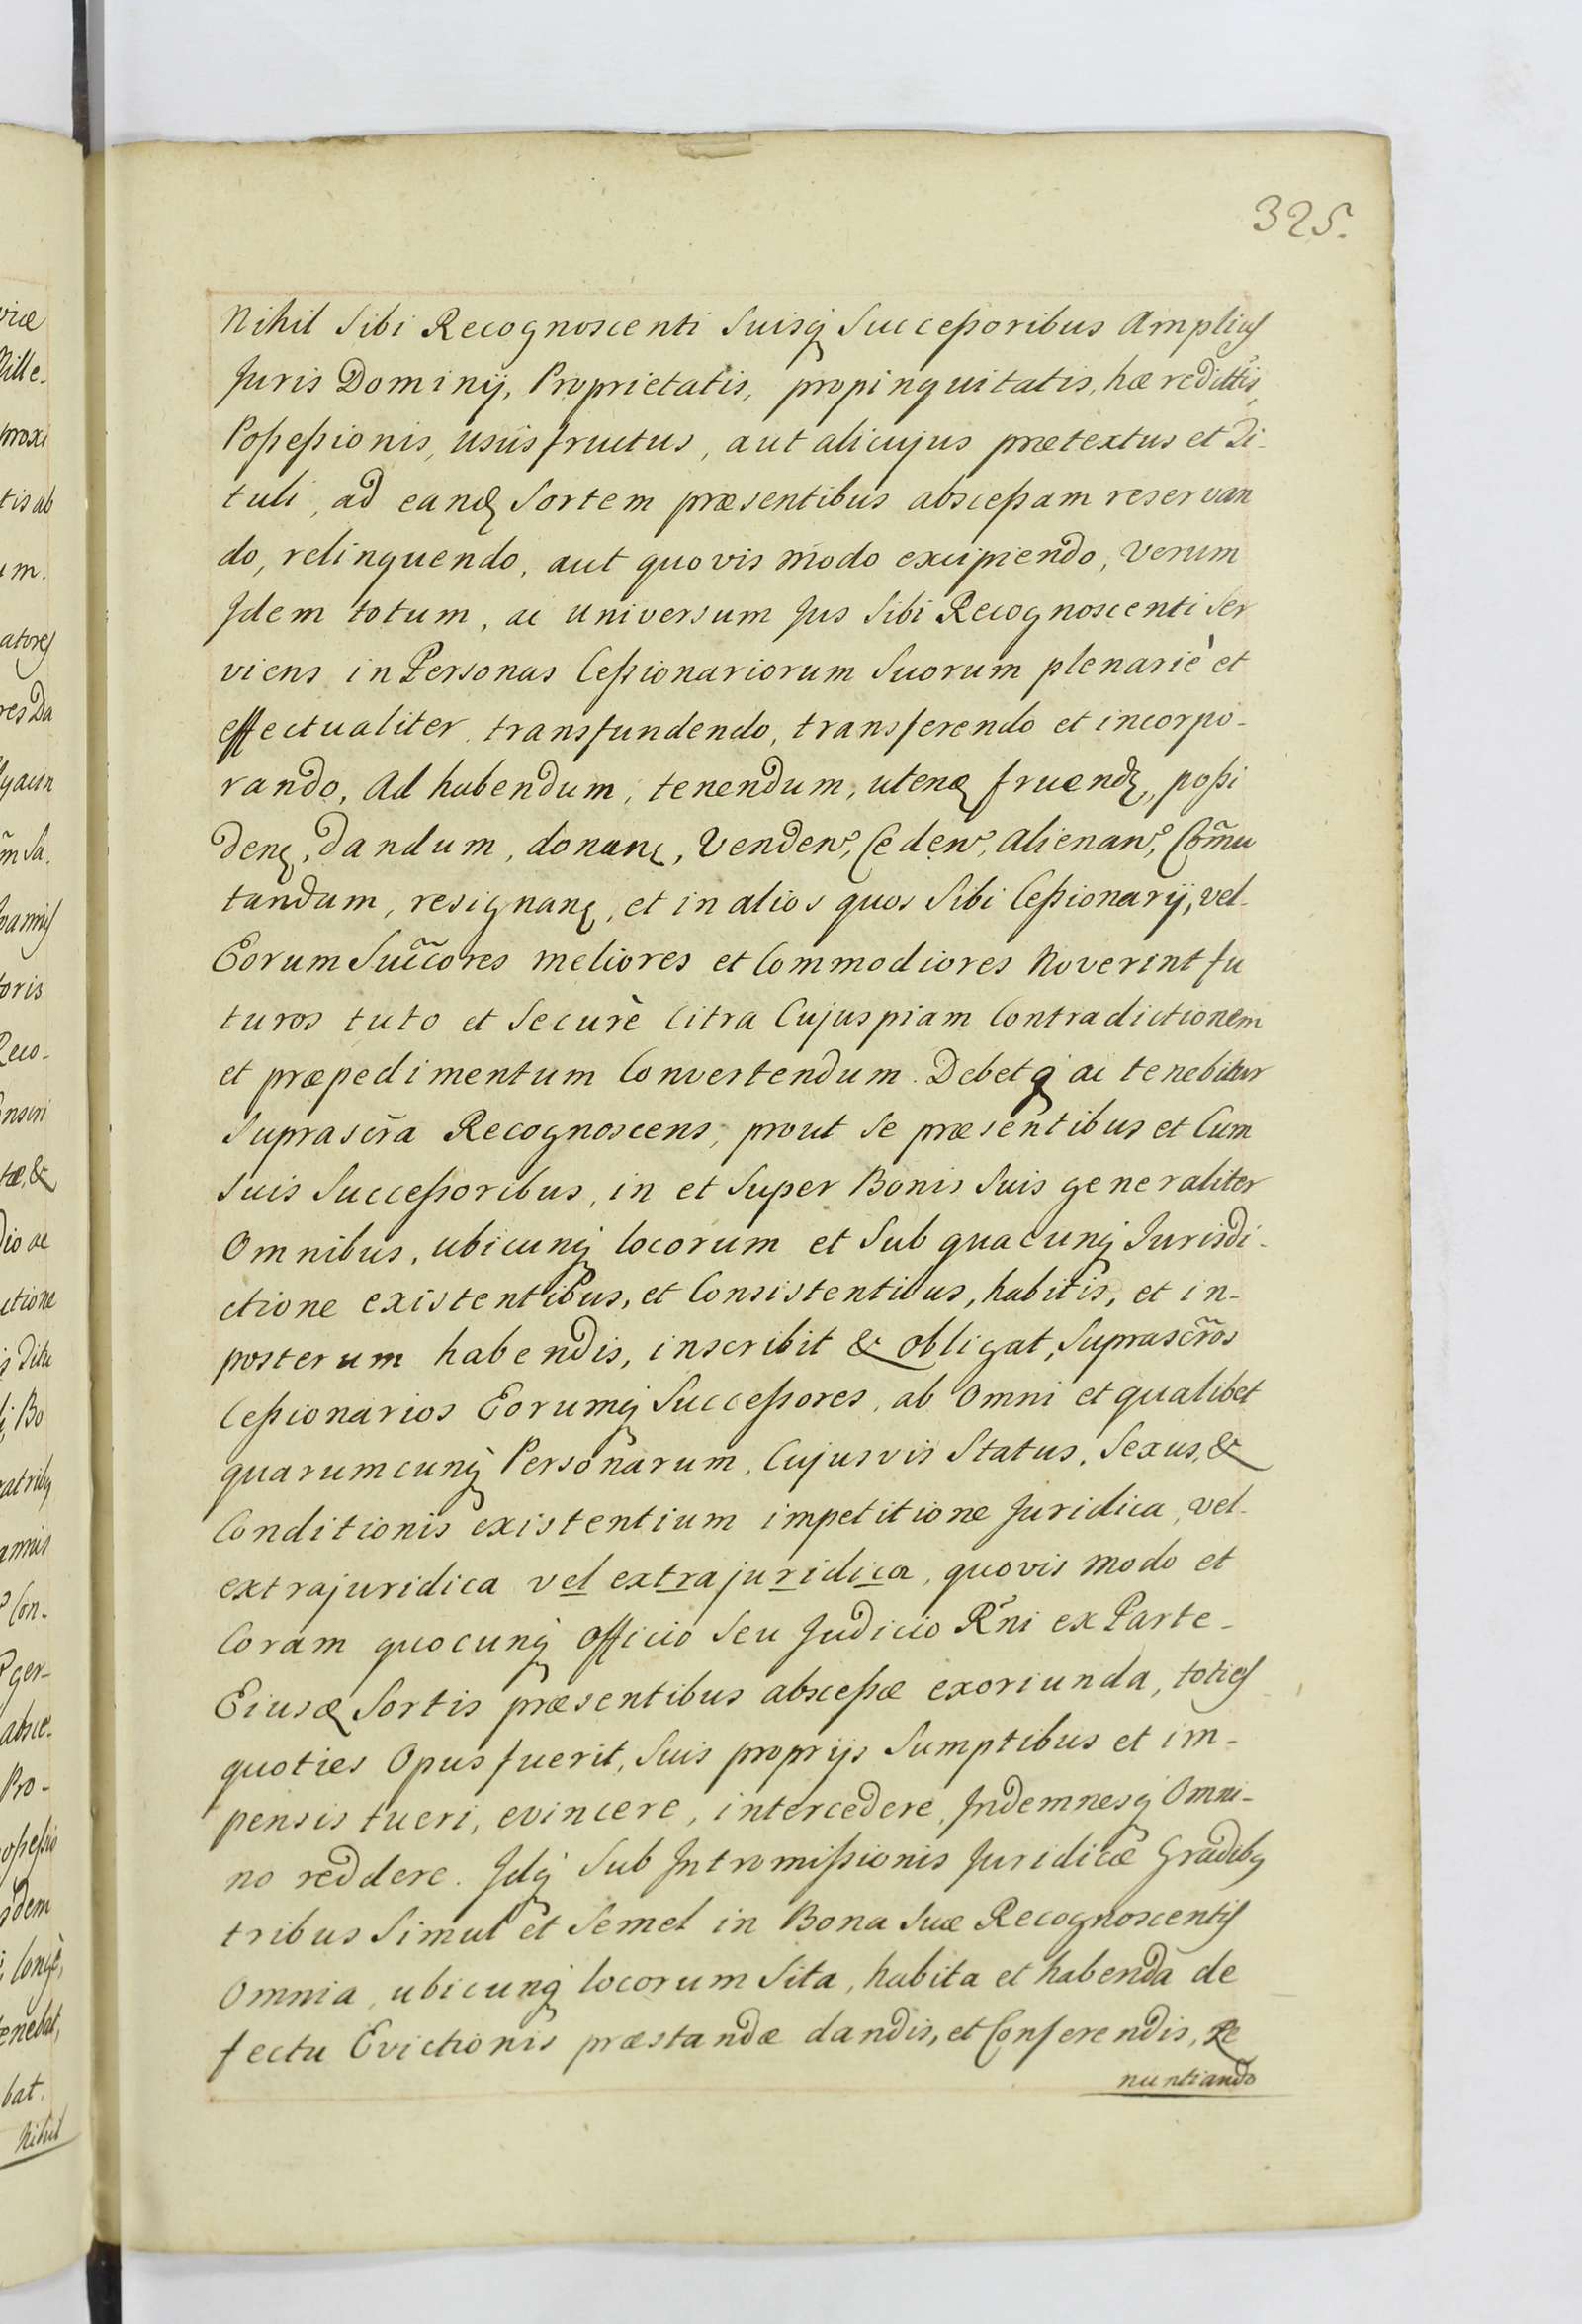 325.
Nihil Sibi Recognoscenti Suisq Successoribus Amplius
Juris Dominij, Proprietatis, propinquitatis, hæredittis,
Possessionis, ususfructus, aut alicujus prætextus et Ti-
tuli, ad eand Sortem præsentibus abscessam reservan
do, relinquendo, aut quovis modo excipiendo, Verum
Idem totum, ac universum Jus Sibi Recognoscenti Ser
viens in Personas Cessionariorum Suorum plenariè et
effectualiter transfundendo, transferendo et incorpo-
rando, Ad habendum, tenendum, utend fruend, possi
dend, dandum, donand, Venden, Ceden, alienan, Com̃u
tandum, resignand, et in alios quos Sibi Cessionarij, vel
Eorum Succ̃ores meliores et Commodiores Noverint fu
turos tuto et Securè Citra Cujuspiam Contradictionem
et præpedimentum Convertendum. Debetq ac tenebitur
Suprascr̃a Recognoscens, prout Se præsentibus et Cum
Suis Successoribus, in et Super Bonis Suis generaliter
Omnibus, ubicunq locorum et Sub quacunq Jurisdi-
ctione existentibus, et Consistentibus, habitis, et in-
posterum habendis, inscribit & obligat, Suprascr̃os
Cessionarios Eorumq Successores, ab Omni et qualibet
quarumcunq Personarum, Cujusvis Status, Sexus, &
Conditionis existentium impetitione Juridica, vel
extrajuridica vel extrajuridica, quovis modo et
Coram quocunq Officio Seu Judicio Rñi ex Parte
Eiusd Sortis præsentibus abscessæ exoriunda, toties
quoties Opus fuerit, Suis proprijs Sumptibus et im-
pensis tueri, evincere, intercedere, Indemnesq Omni-
no reddere. Idq Sub Intromissionis Juridicæ Gradibq
tribus Simul et Semel in Bona Suæ Recognoscentis
Omnia, ubicunq locorum Sita, habita et habenda de
fectu Evictionis præstandæ dandis, et Conferendis, Re
nuntiando